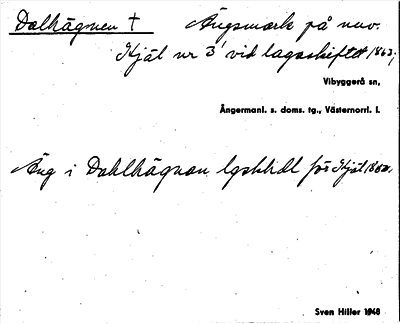 Dalhägnen † Ängsmark på nuv.
Kjäl nr 3 vid lagaskiftet 1863;
Vibyggerå sn,
Ångermanl. s. doms. tg., Västernorrl. l.
Äng i Dahlhägnan lgskhdl för Kjäl
Sven Hiller 1948